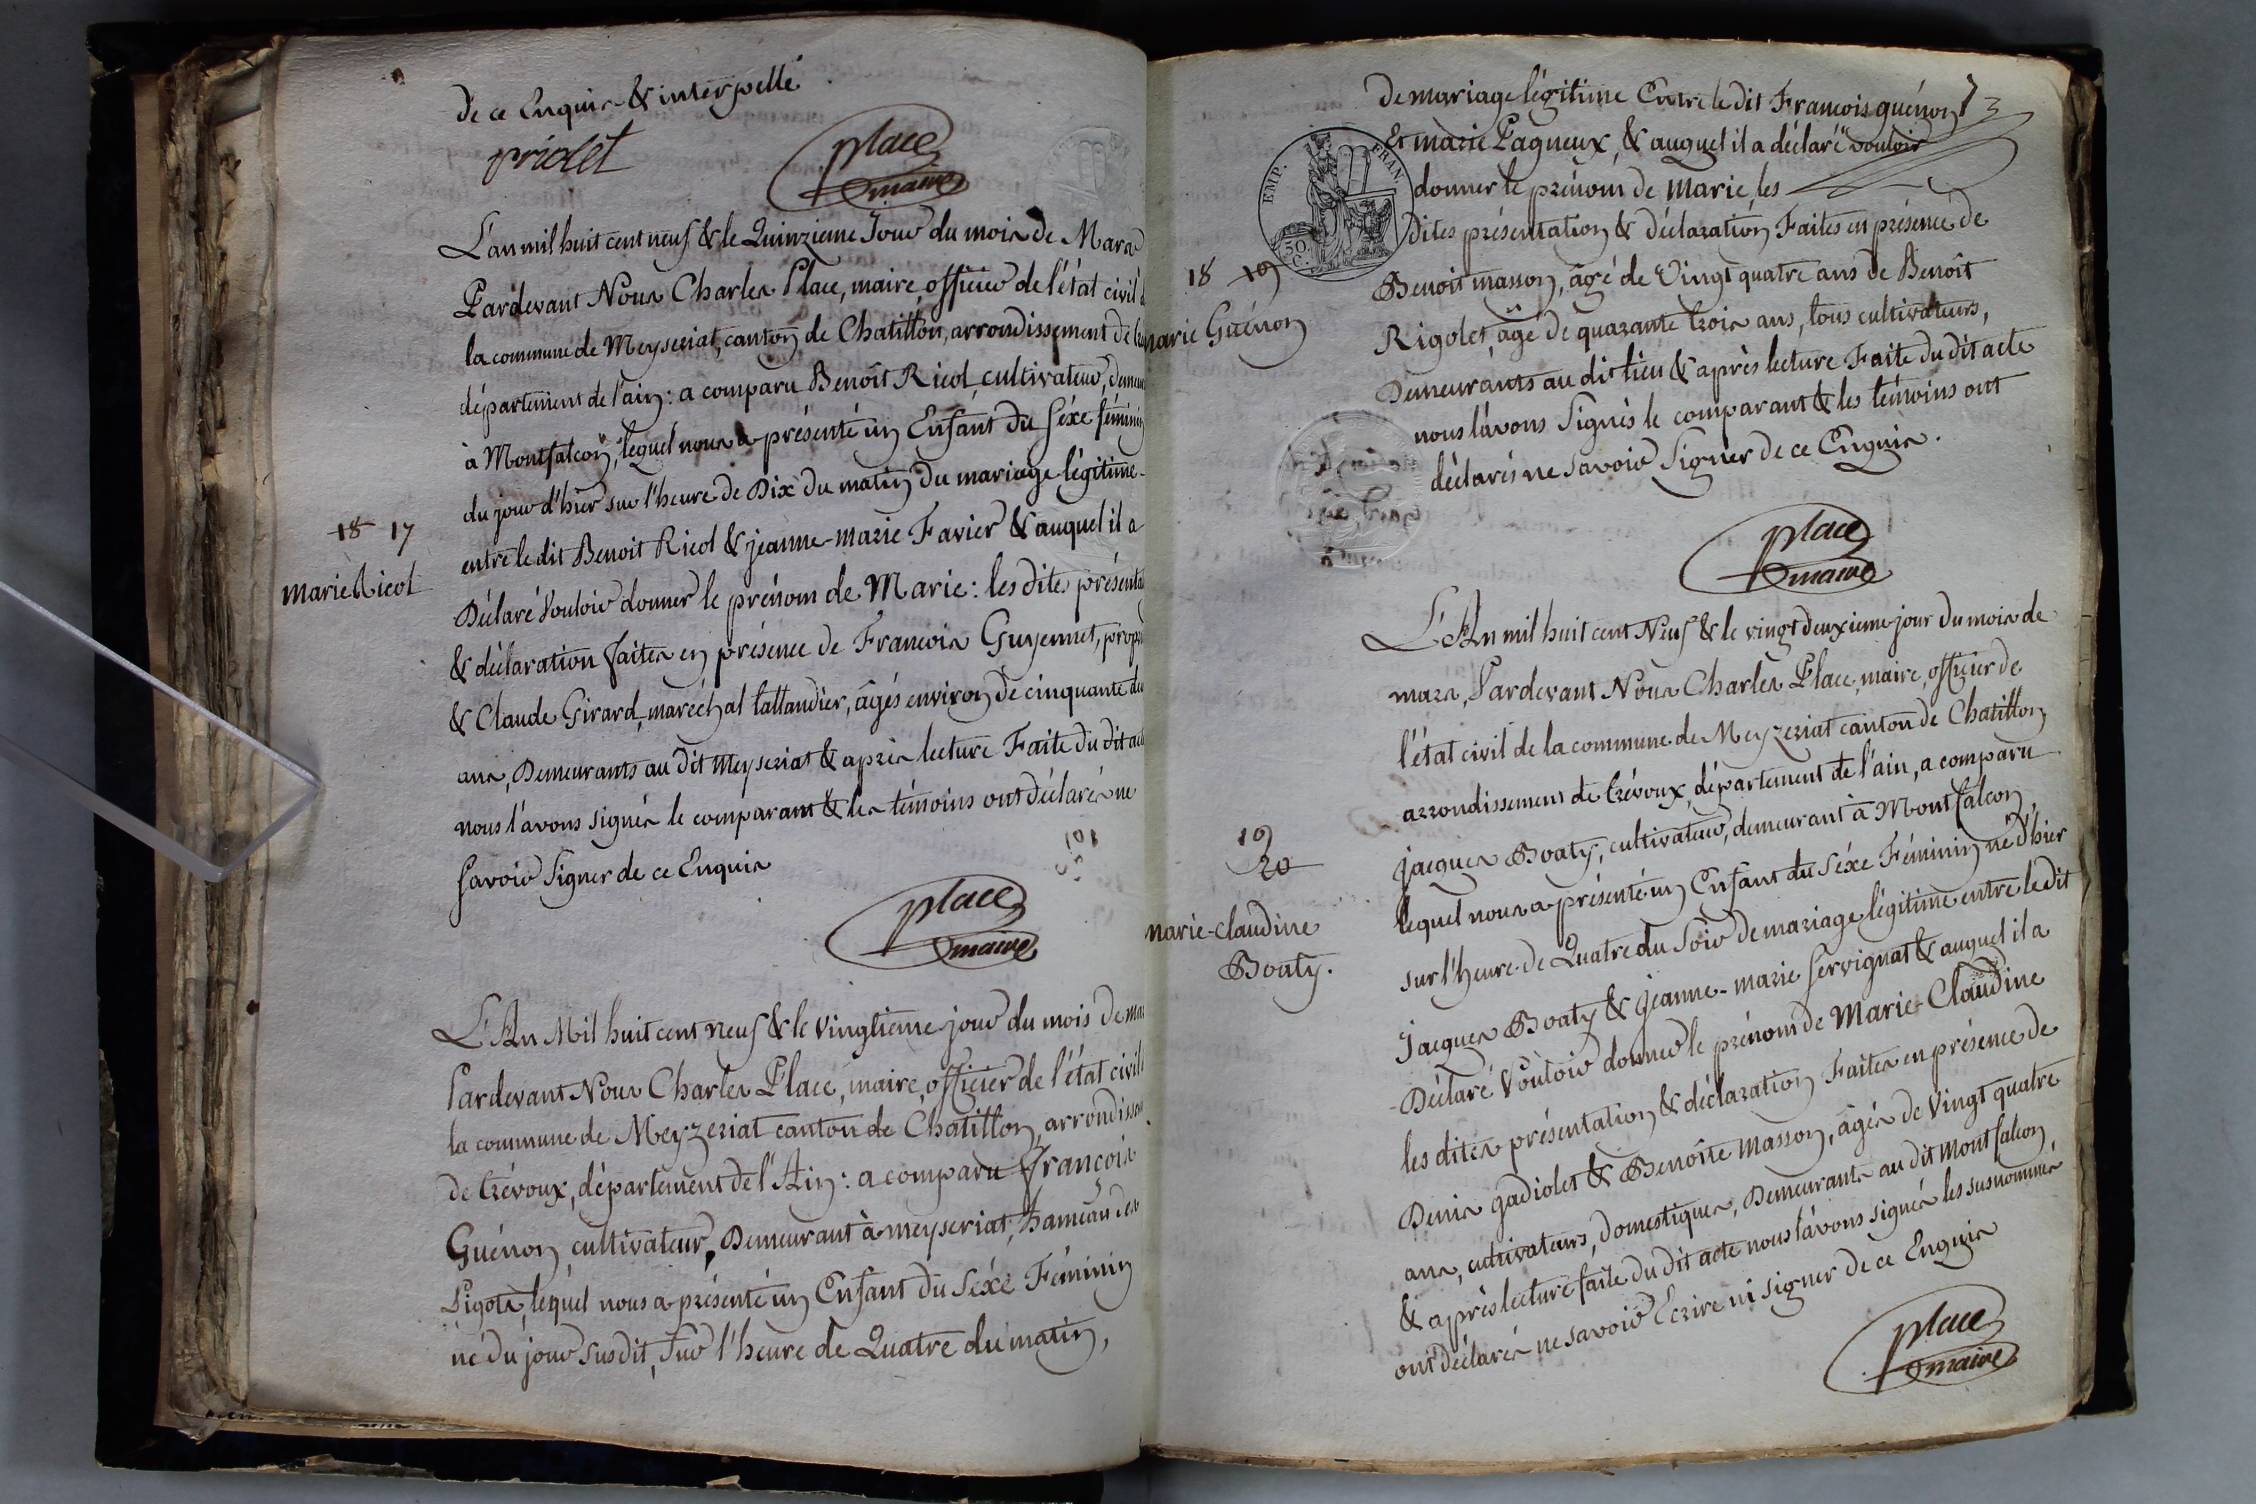 de ce Enquis & interpellé
priolet
place
maire
L'an mil huit cent neuf & le Quinzieme Jour du mois de Mars
Pardevant Nous Charles Place, maire, officier de l'état civil
la commune de Meyseriat, canton de Chatillon, arrondissement de
département de l'ain : a comparu Benoît Ricol cultivateur,
à Montfalcon, lequel nous a présenté un Enfant du Séxe féminin
du jour d'hier sur l'heure de Dix du matin du mariage légitime
18 17
entre le dit Benoit Ricol & jeanne-marie Favier & auquel il a
Marie Ricol
Déclaré Vouloir donner le prénom de Marie : les dites
& déclaration faites en présence de Francois Guyennet,
& Claude Girard, maréchal tallandier, âgés environ de cinquante
ans, Demeurants au dit Meyseriat & après lecture Faite du dit
nous l'avons signés le comparant & les témoins ont déclarés ne
Savoir Signer de ce Enquis
place
maire
L'An Mil huit cent neuf & le vingtième jour du mois de
Pardevant Nous Charles Place, maire, officier de l'état civil
la commune de Meyzeriat canton de Chatillon,
de trévoux, département de l'Ain : a comparu François
Guénon, cultivateur, Demeurant à meyseriat, hameau des
Pigots, lequel nous a présenté un Enfant du Séxe Féminin
né du jour susdit, sur l'heure de Quatre du matin,
de mariage légitime Entre le dit François guénon
Et marie Pagneux, & auquel il a déclaré vouloir
EMP. FRAN
donner le prénom de Marie, les
dites présentation & déclaration Faites en présence de
30 C.
18 19
Benoit masson, âgé de Vingt quatre ans de Benoît
marie Guénon
Rigolet, âgé de quarante trois ans, tous cultivateurs,
Demeurants au dit lieu & après lecture Faite du dit acte
nous l'avons Signés le comparant & les témoins ont
déclarés ne Savoir Signer de ce Enquis.
place
maire
L'An mil huit cent Neuf & le vingt deuxieme jour du mois de
mars, Pardevant Nous Charles Place, maire, officier de
l'état civil de la commune de Meyzeriat canton de Chatillon
arrondissement de trévoux, département de l'ain, a comparu
19
20
jacques Boaty, cultivateur, demeurant à Montfalcon,
lequel nous a présenté un Enfant du Séxe Féminin né d'hier
marie-claudine
Boaty.
sur l'heure de Quatre du Soir de mariage légitime entre le dit
Jacques Boaty & jeanne-marie servignat & auquel il a
Déclaré Vouloir donner le prénom de Marie-Claudine
les dites présentation & déclaration Faites en présence de
Denis gadiolet & Benoîte masson, âgés de Vingt quatre
ans, cultivateurs, domestiques, Demeurants au dit montfalcon,
& après lecture faite du dit acte nous l'avons signés les susnommés
ont déclarés ne savoir Ecrire ni signer de ce Enquis
place
maire